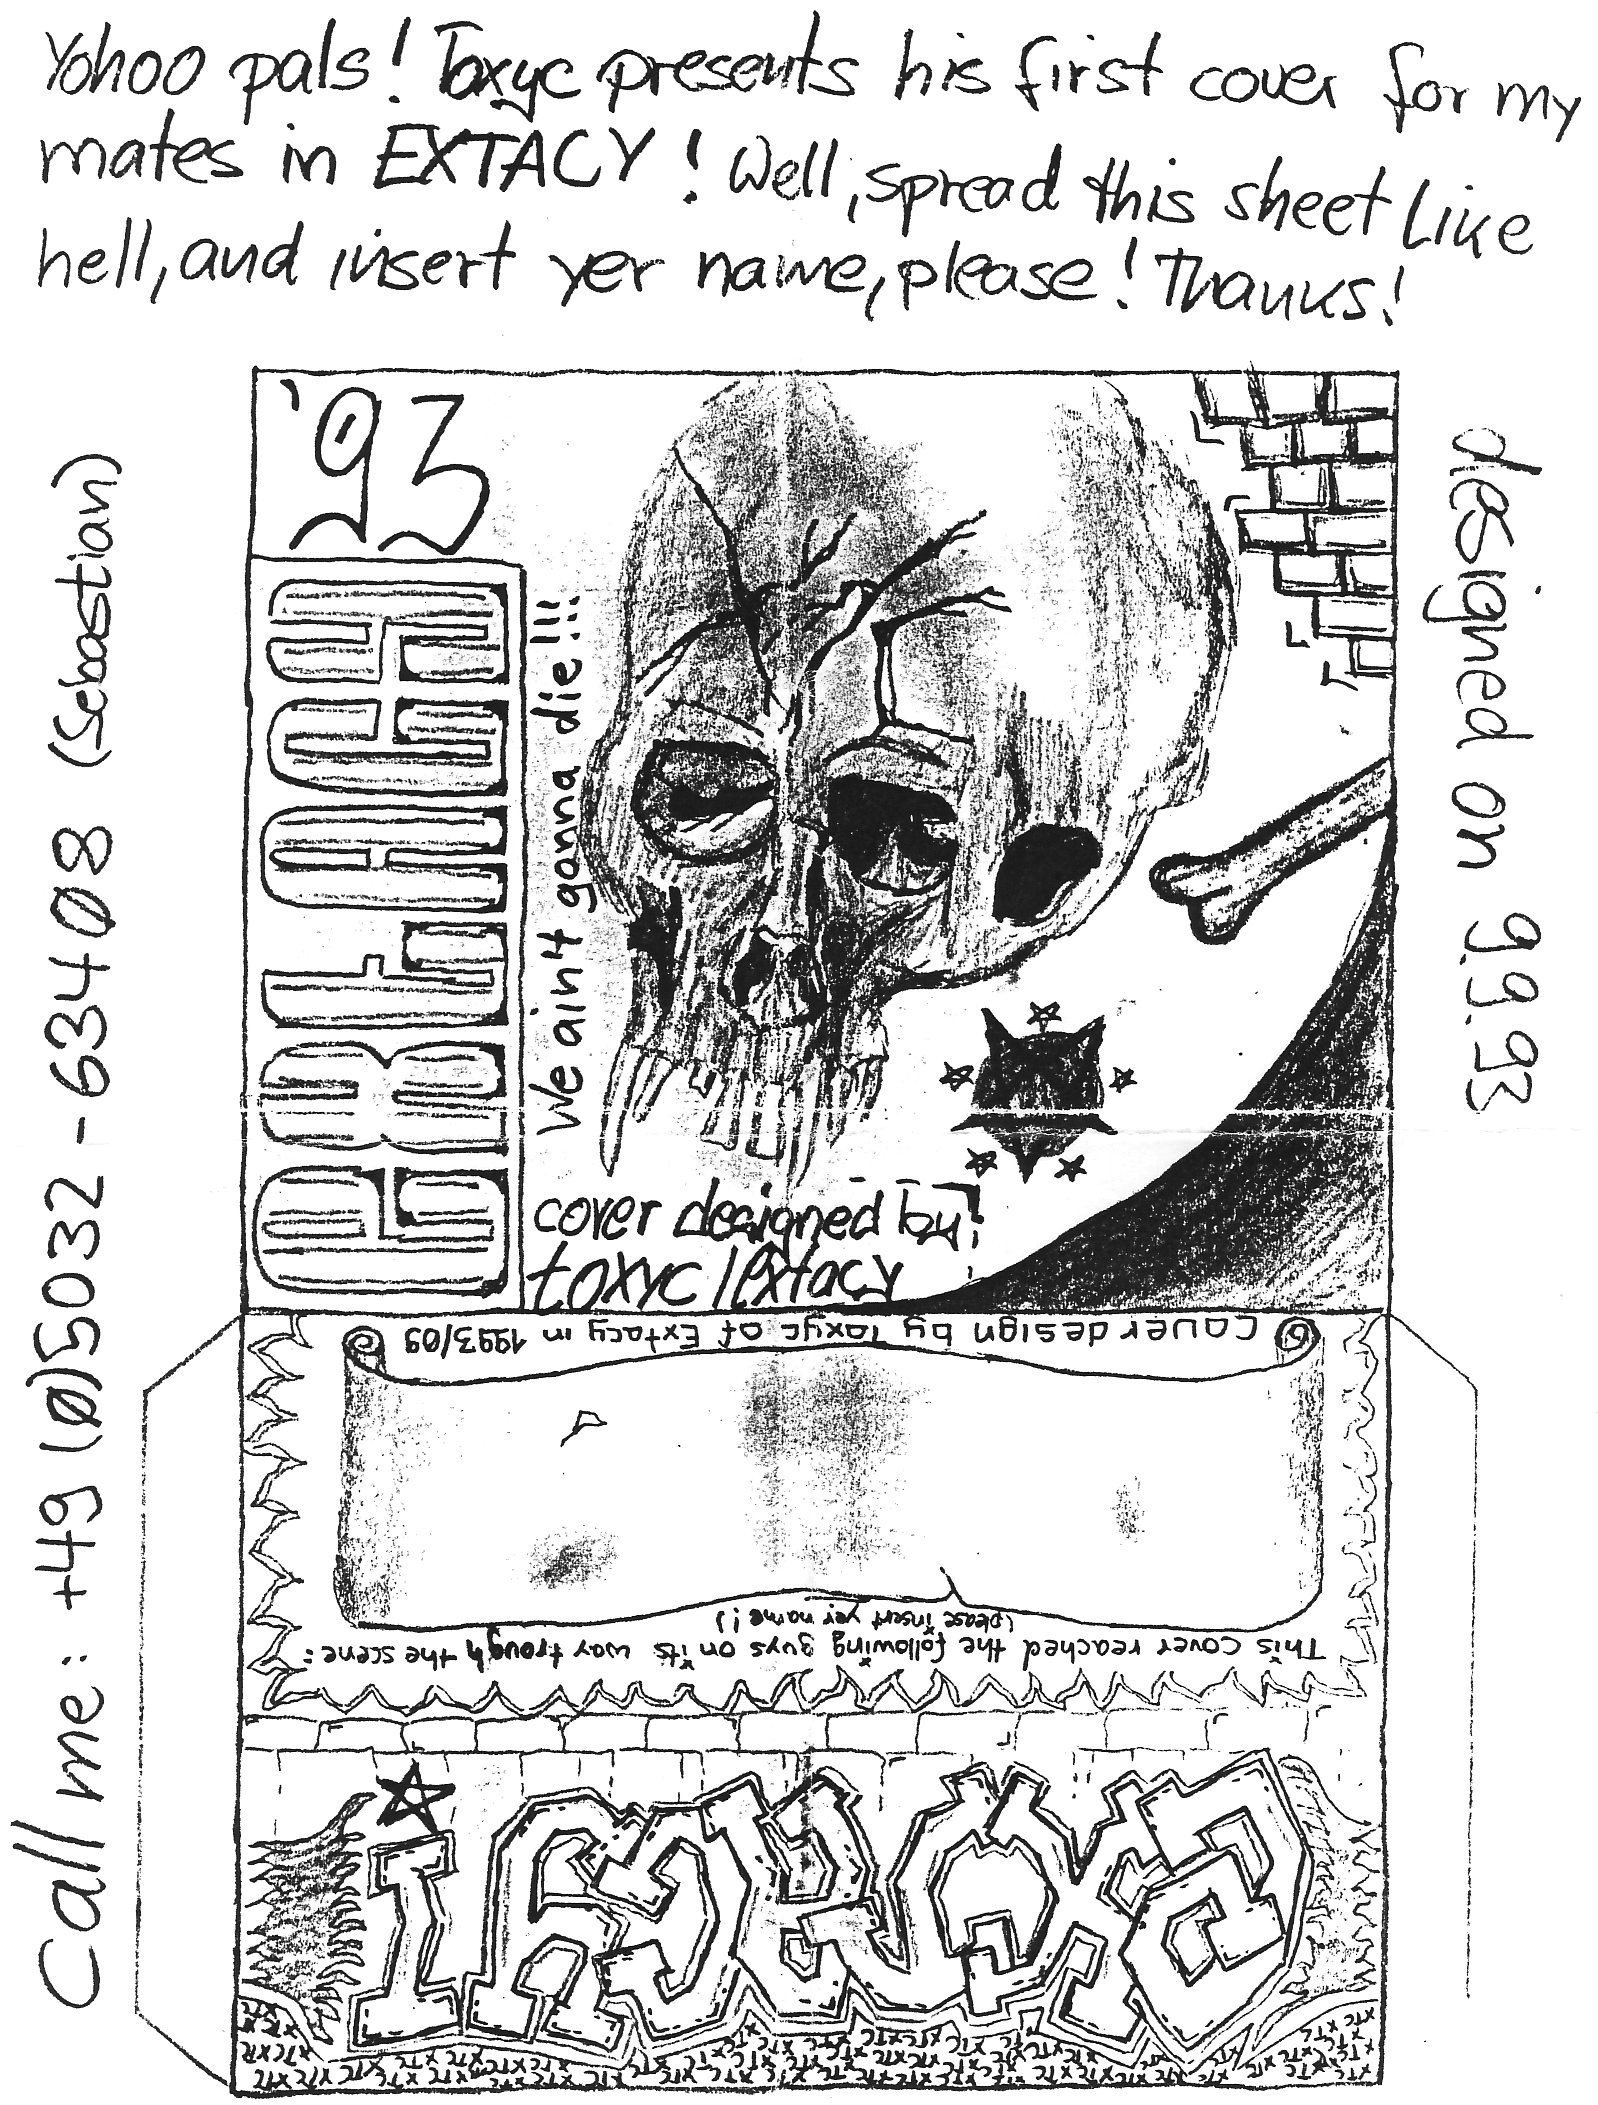 Yohoo pals! Toxyc presents his first cover for my
mates in EXTACY! Well, spread this sheet like
hell, and insert yer name, please! Thanks!
'93
We ain't gonna die!!!
cover designed by:
toxyc/Extacy
designed on 9.9.93
Call me: +49 (0)5032-63408 (Sebastian)
Cover design by Toxyc of Extacy in 1993/09
This cover reached the following guys on its way trough the scene:
(please insert yer name!)
XTC XTC XTC XTC XTC XTC